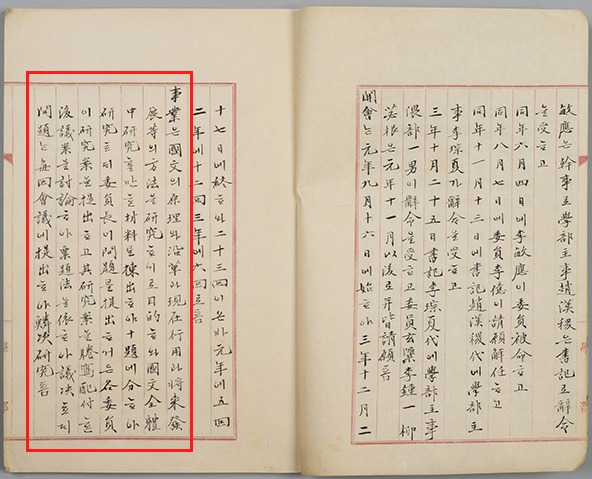 敏應은幹事로學部主事趙漢稷은書記로辭令
을受ᄒᆞ고
同年六月四日에李敏應이委員被命ᄒᆞ고
同年八月七日에委員李億이請願解任ᄒᆞ고
同年十一月十三日에書記趙漢稷代에學部主
事李琮夏가辭令을受ᄒᆞ고
三年十月二十五日書記李琮夏代에學部主事
隈部一男이辭令을受ᄒᆞ고委員玄檃李鍾一柳
苾根은元年十一月以後로幷皆請願홈
開會ᄂᆞᆫ元年九月十六日에始ᄒᆞ야三年十二月二
十七日에終ᄒᆞ니二十三回이온바元年에五回
二年에十二回三年에六回로홈
事業은國文의原理와沿革과現在行用과將來發
展等의方法을研究ᄒᆞ기로目的ᄒᆞ와國文全體
中研究ᄒᆞᆯ만ᄒᆞᆫ材料를揀出ᄒᆞ야十題에分ᄒᆞ야
研究ᄒᆞ되委員長이問題를提出ᄒᆞ거든各委員
이研究案을提出ᄒᆞ고其研究案을謄寫配付ᄒᆞᆫ
後議案을討論ᄒᆞ야票題法을依ᄒᆞ야議決호되
問題ᄂᆞᆫ每回會議에提出ᄒᆞ야鱗次研究홈